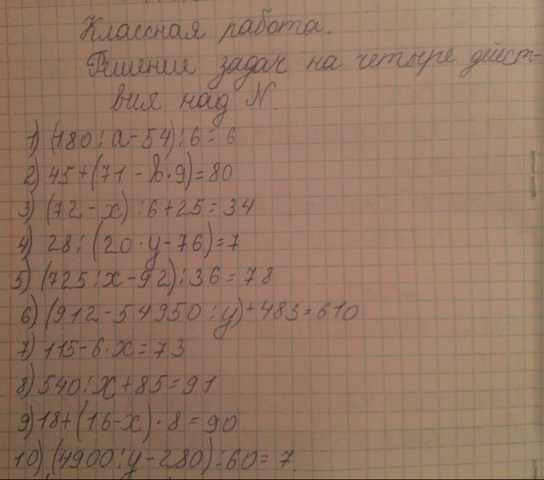 Классная работа.
Решение задач на четыре дейст-
вия над N.
1) (180:a-54):6=6
2) 45+(71-b·9)=80
3) (72-x):6+25=34
4) 28:(20·y-76)=7
5) (725:x-92):36=78
6) (912-54950:y)+483=610
7) 115-6·x=73
8) 540:x+85=91
9) 18+(16-x)·8=90
10) (4900:y-280):60=7